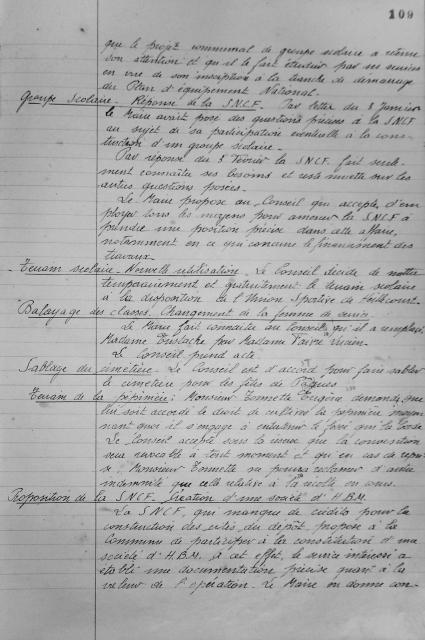 109
que le projet communal de groupe scolaire a retenu
son attention et qu'il le fait étudier par ses services
en vue de son inscription à la tranche de démarrage
du Plan d'équipement National.
Groupe Scolaire - Réponse de la S.N.C.F. Par lettre du 8 Janvier
le Maire avait posé des questions précises à la S.N.C.F
au sujet de sa participation éventuelle à la cons-
truction d'un groupe scolaire.
Par réponse du 5 Février la S.N.C.F. fait seule-
ment connaître ses besoins et reste muette sur les
autres questions posées.
Le Maire propose au Conseil qui accepte, d'em
ployer tous les moyens pour amener la S.N.C.F à
prendre une position précise dans cette affaire,
notamment en ce qui concerne le financement des
travaux.
Terrain scolaire - Nouvelle utilisation. Le Conseil décide de mettre
temporairement et gratuitement le terrain scolaire
à la disposition de l'Union Sportive de
Balayage des classes. Changement de la femme de service
Le Maire fait connaître au Conseil qu'il a remplacé
Madame Eustache par Madame Faivre Lucien.
Le Conseil prend acte.
Sablage du cimetière - Le Conseil est d'accord pour faire sabler
le cimetière pour les fêtes de Pâques
Terrain de la pépinière: Monsieur Tonnette Eugène demande que
lui soit accordé le droit de cultiver la pépinière moyen
nant quoi il s'engage à entretenir le fossé qui la borde
Le Conseil accepte sous la réserve que la convention
sera révocable à tout moment et qu'en cas de repri
se, Monsieur Tonnette ne pourra réclamer d'autre
indemnité que celle relative à la récolte en cours.
Proposition de la S.N.C.F. Création d'une société d'H.B.M.
La S.N.C.F, qui manque de crédits pour la
construction des cités du dépôt, propose à la
Commune de participer à la constitution d'une
société d'H.B.M. à cet effet, le service intérieur a
établi une documentation précise quant à la
valeur de l'opération. Le Maire en donne con-